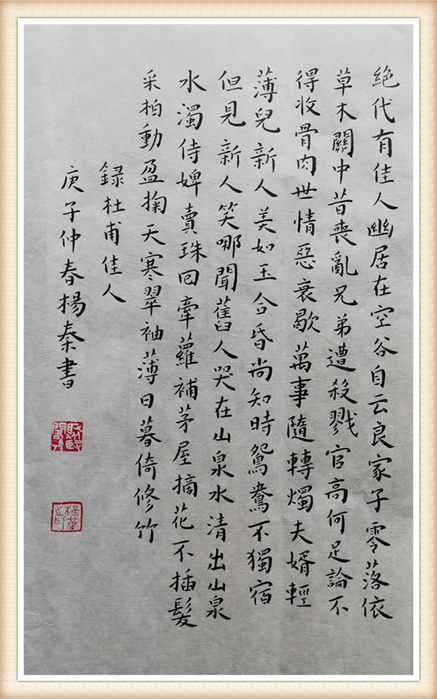 絶代有佳人幽居在空谷自云良家子零落依
草木關中昔喪亂兄弟遭殺戮官高何足論不
得收骨肉世情惡衰歇萬事隨轉燭夫婿輕
薄兒新人美如玉合昏尚知時鴛鴦不獨宿
但見新人笑哪聞舊人哭在山泉水清出山泉
水濁侍婢賣珠回牽蘿補茅屋摘花不插髮
采柏動盈掬天寒翠袖薄日暮倚修竹
録杜甫佳人
庚子仲春楊秦書